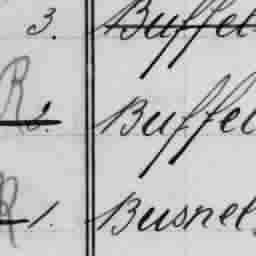 3. Buffet
R 2. Buffet
R 1. Busnel